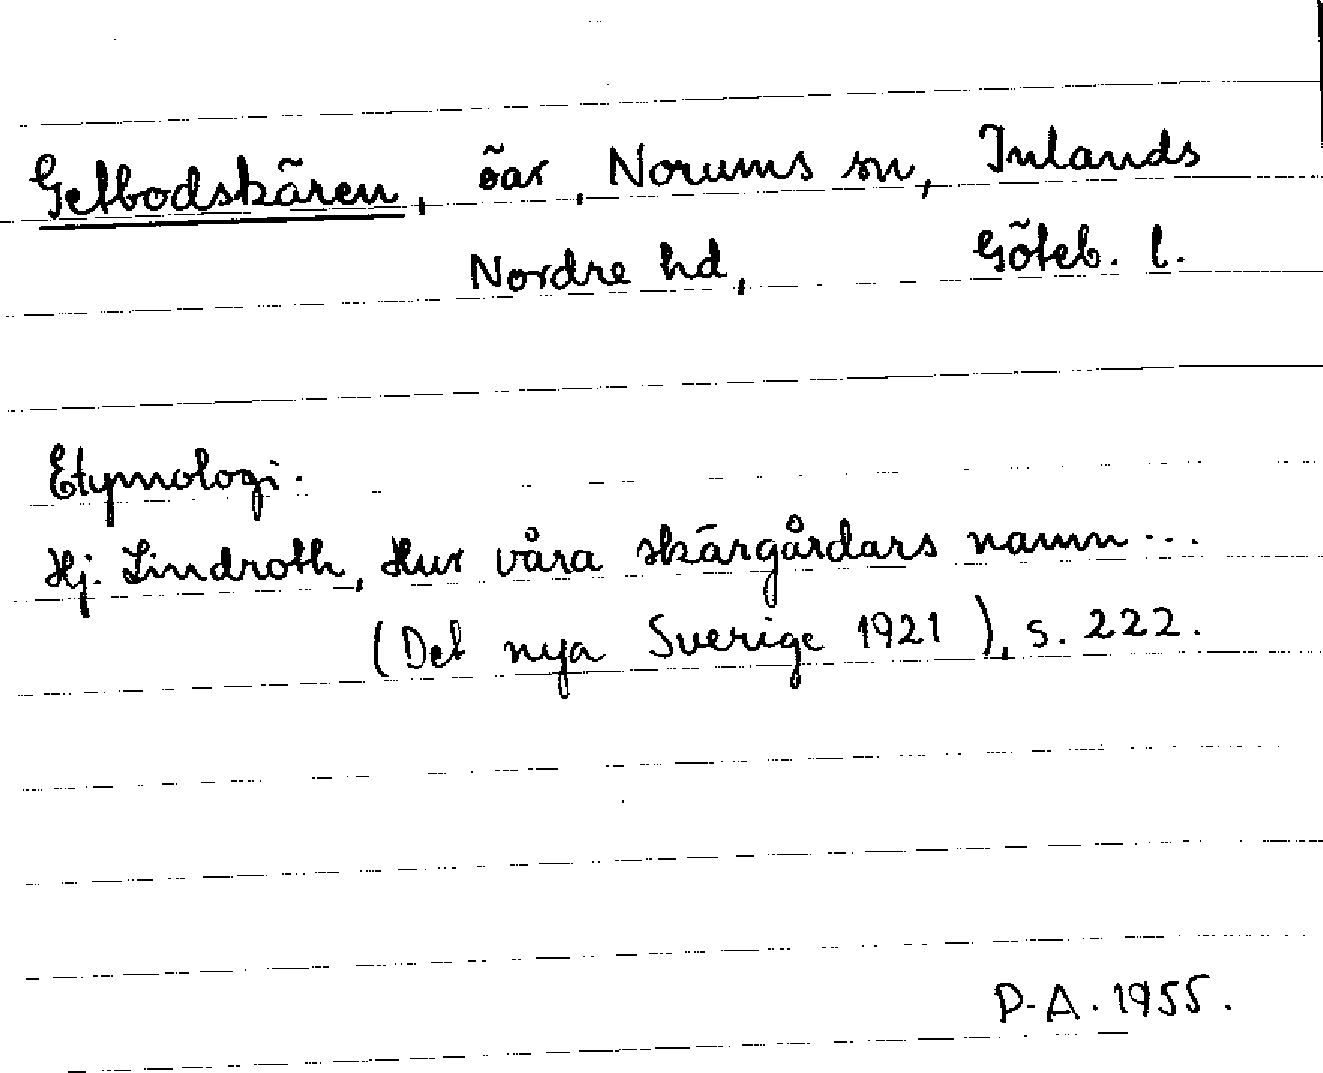 Getbodskären, öar, Norums sn, Inlands
Nordre hd, Göteb. l.
Etymologi.
Hj. Lindroth, Hur våra skärgårdars namn ...
(Det nya Sverige 1921), s. 222.
P-A. 1955.